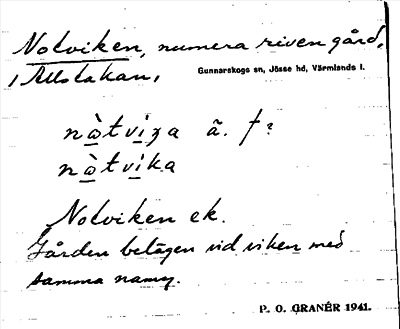 Notviken, numera riven gård,
i Allstakan,
Gunnarskogs sn, Jösse hd, Värmlands l.
ã. †?
nàtvika
Notviken ek.
Gården belägen vid viken med
samma namn.
P. O. GRANÉR 1941.